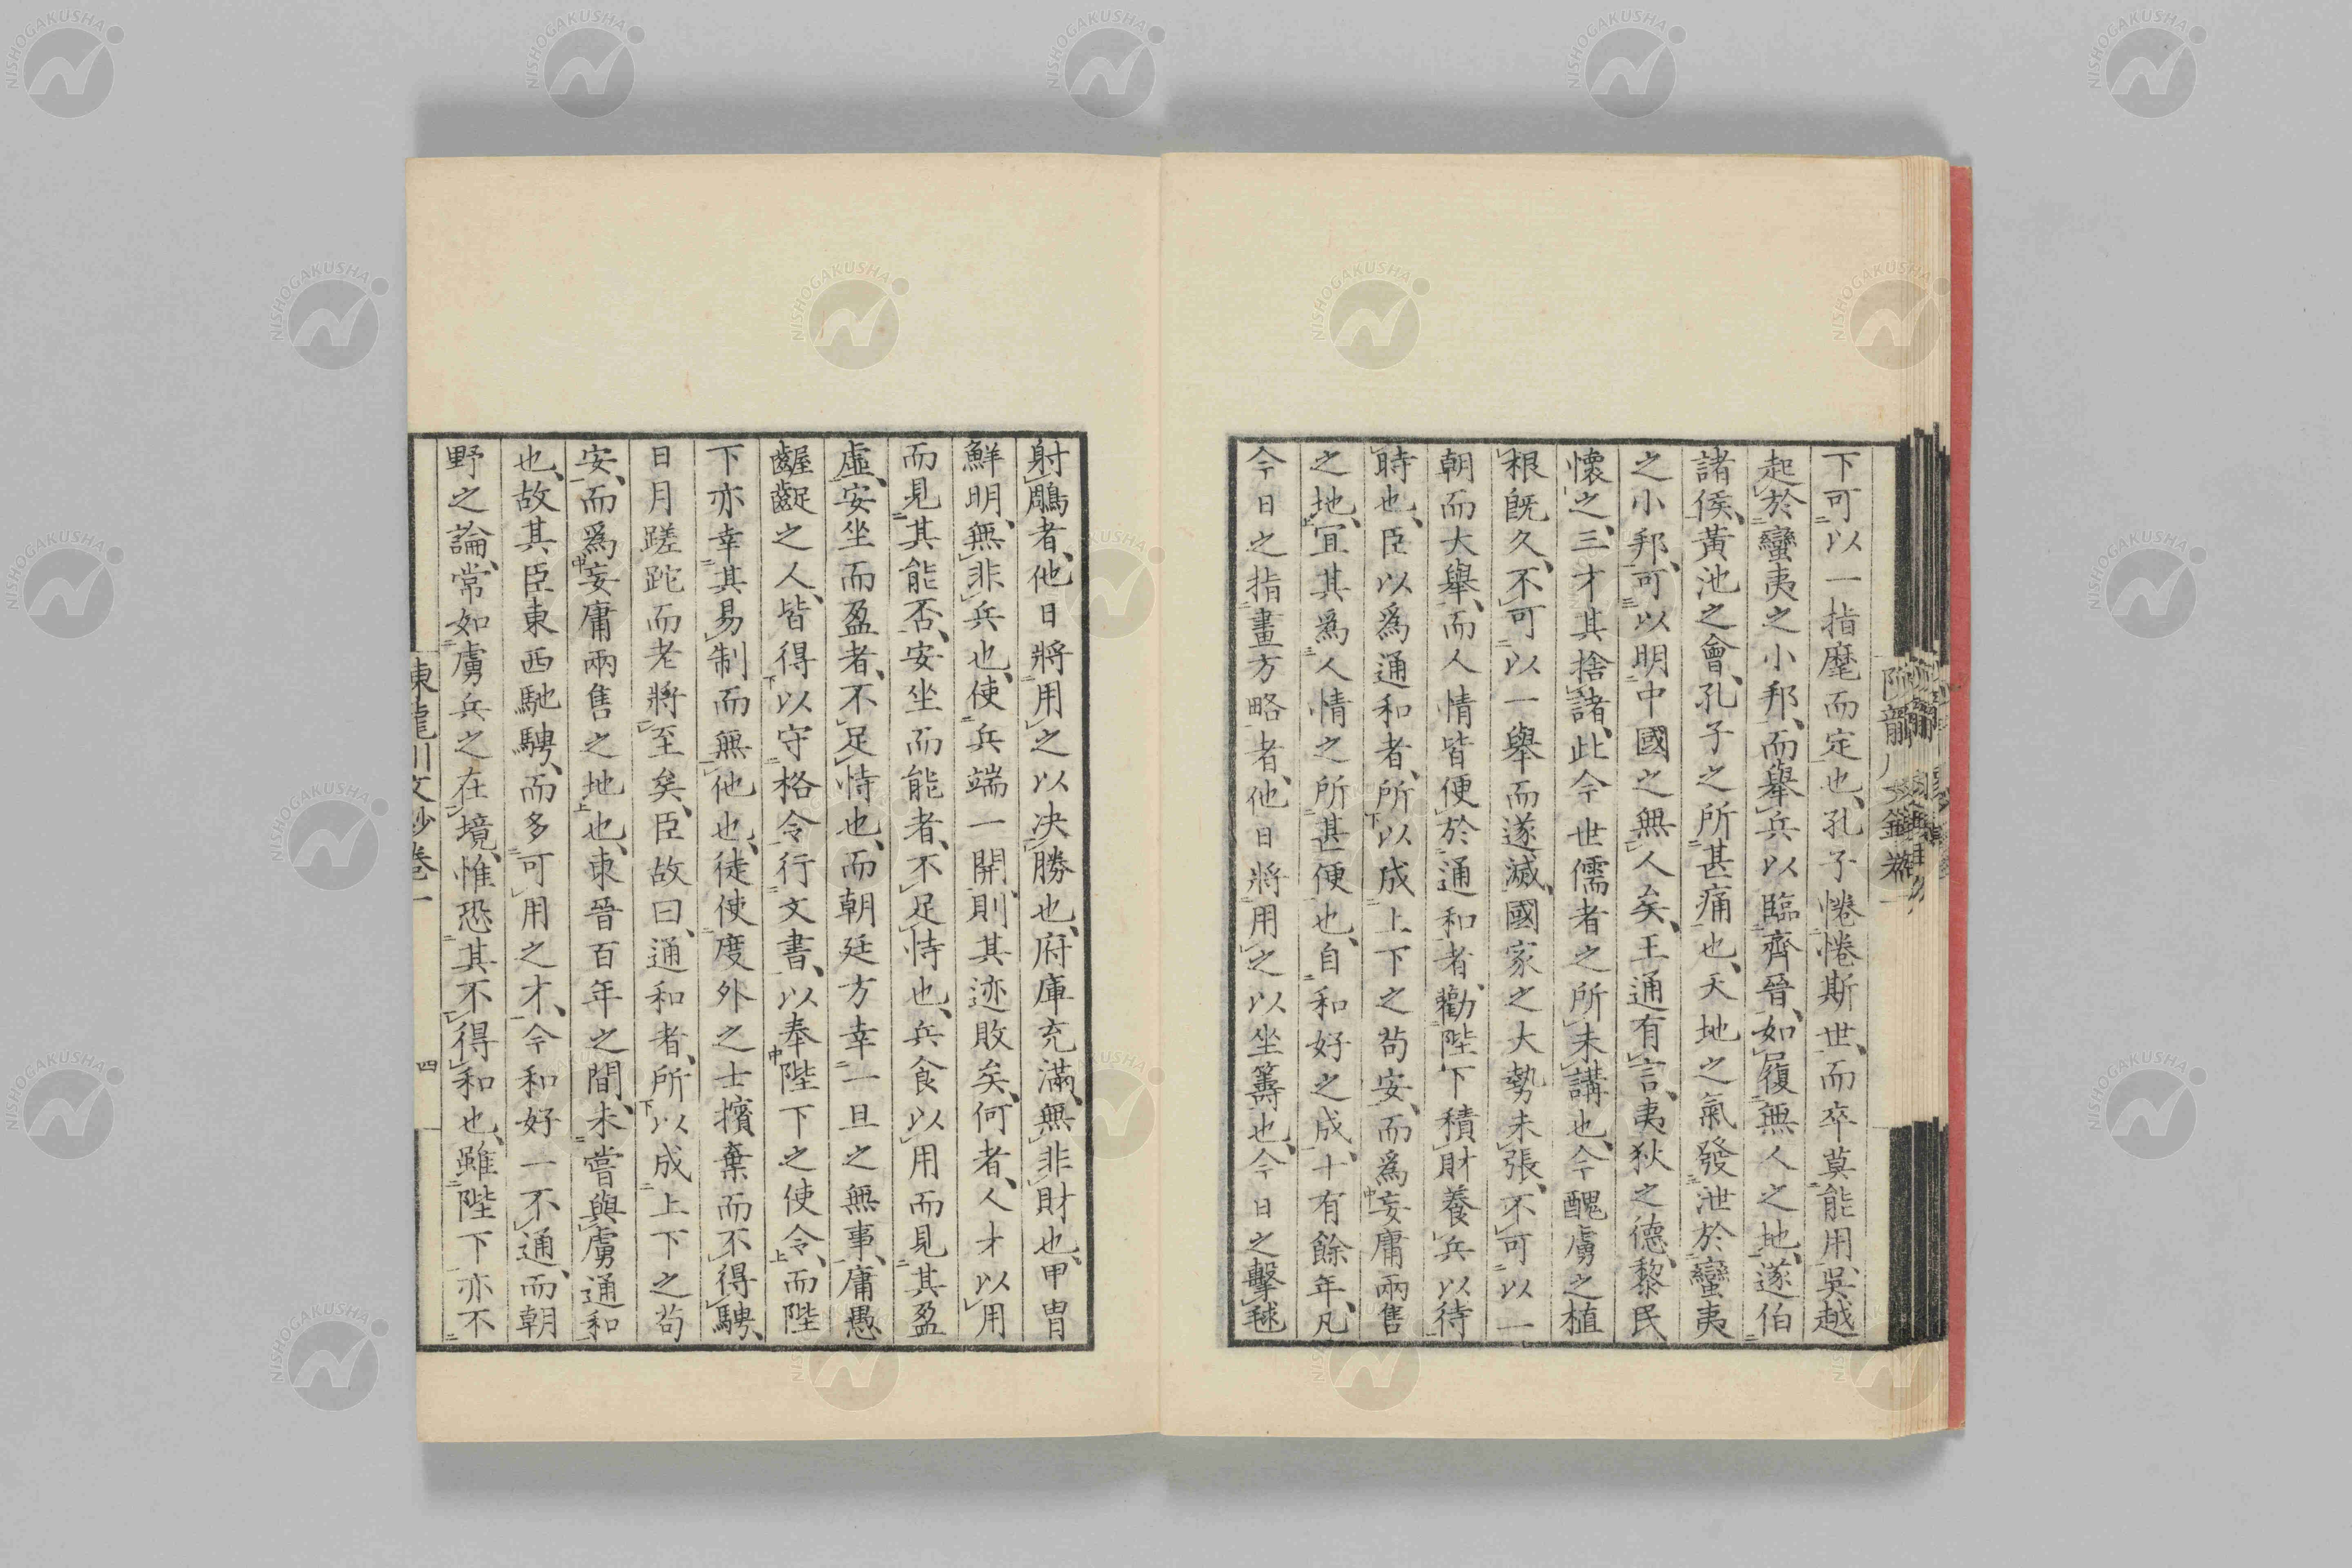 下可以一指麾而定也、孔子惓惓斯世、而卒莫能用、吳越
起於蠻夷之小邦、而舉兵以臨齊晉、如履無人之地、遂伯
諸侯、黃池之會、孔子之所甚痛也、天地之氣發泄於蠻夷
之小邦、可以明中國之無人矣、王通有言、夷狄之德、黎民
懷之、三才其捨諸、此今世儒者之所未講也、今醜虜之植
根既久、不可以一舉而遂滅、國家之大勢未張、不可以一
朝而大舉、而人情皆便於通和者、勸陛下積財養兵以待
時也、臣以爲通和者、所以成上下之苟安、而爲妄庸兩售
之地、宜其爲人情之所甚便也、自和好之成、十有餘年、凡
今日之指畫方略者、他日將用之以坐籌也、今日之擊毬
射鵰者、他日將用之以決勝也、府庫充滿、無非財也、甲冑
鮮明、無非兵也、使兵端一開、則其迹敗矣、何者、人才以用
而見其能否、安坐而能者、不足恃也、兵食以用而見其盈
虛、安坐而盈者、不足恃也、而朝廷方幸一旦之無事、庸愚
齷齪之人、皆得以守格令行文書、以奉陛下之使令、而陛
下亦幸其易制而無他也、徒使度外之士擯棄而不得騁、
日月蹉跎而老將至矣、臣故曰、通和者、所以成上下之苟
安、而爲妄庸兩售之地也、東晉百年之間、未嘗與虜通和
也、故其臣東西馳騁、而多可用之才、今和好一不通、而朝
野之論、常如虜兵之在境、惟恐其不得和也、雖陛下亦不
陳龍川文鈔卷一
四
NISHOGAKUSHA